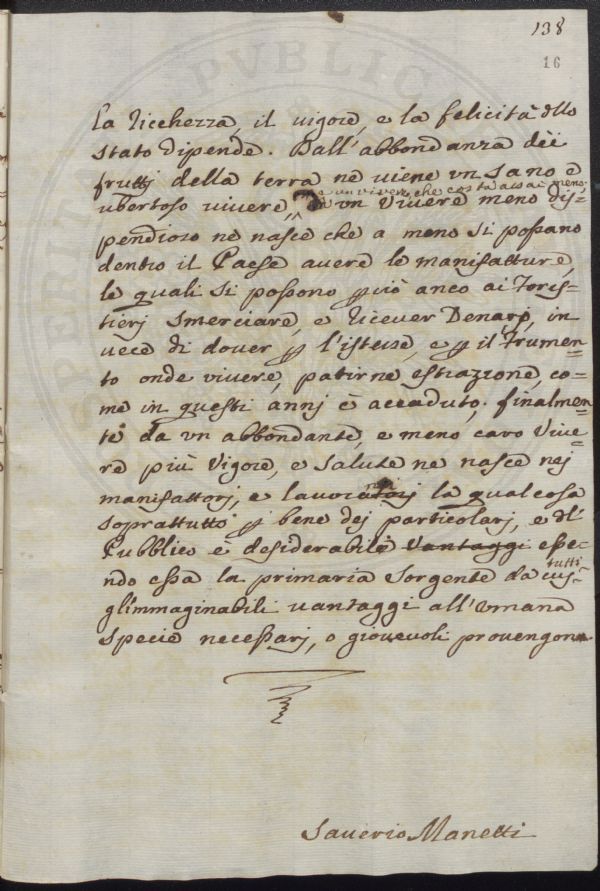 138
16
la ricchezza, il vigore, e la felicità dllo
stato dipende. Dall'abbondanza dei
fruttj della terra ne viene vn sano e
e un vivere che costa assai meno
ubertoso vivere, Da vn vivere meno dis-
pendioso ne nasce che a meno si possano
dentro il Paese avere le manifatture,
le quali si possono p ciò anco ai Foris=
tierj smerciare, e ricever Denarj, in
vece di dover p l'istesse, e p il Frumen=
to onde vivere, patirne estrazione, co=
me in questi annj è accaduto. finalmen=
te da vn abbondante, e meno caro Vive=
re più Vigore, e salute ne nasce nej
manifattorj, e lavoratorj la qual cosa
soprattutto p bene dej particolarj, e dl
Pubblico è desiderabile vantaggi esse-
tutti
ndo essa la primaria sorgente da cui
gl'immaginabili vantaggi all'vmana
specie necessarj, o giovevoli provengono.
Saverio Manetti